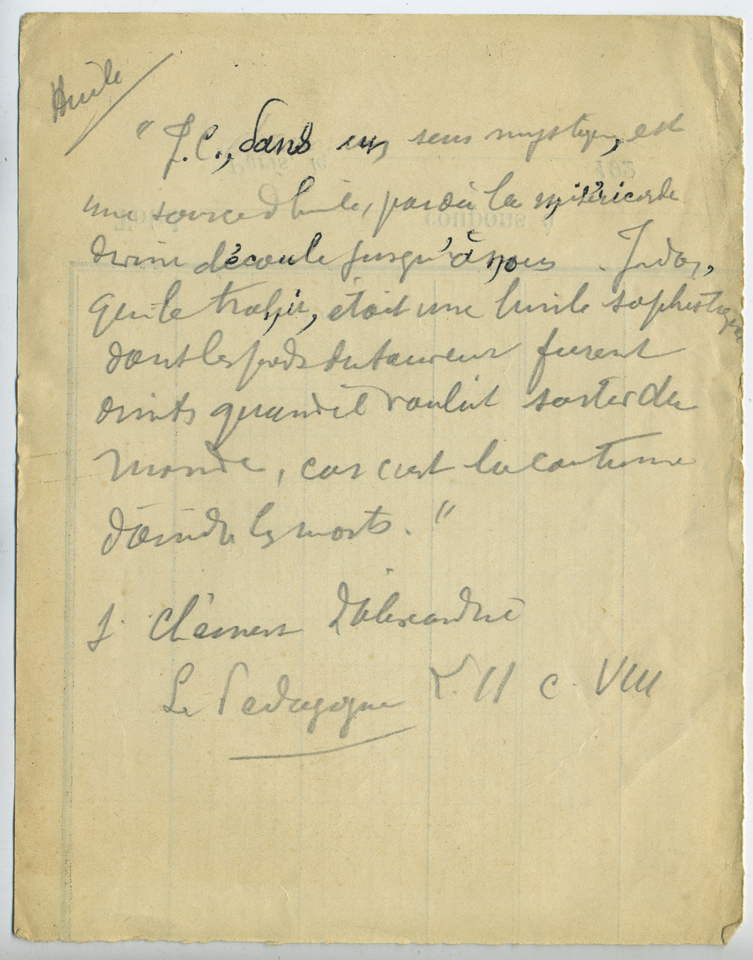 Huile
"J.C., dans un sens mystique, est
une source d'huile, par où la miséricorde
divine découle jusqu'à nous. Judas,
qui le trahit, était une huile sophistiquée
dont les pieds du sauveur furent
oints quand il voulut sortir du
monde, car c'est la coutume
d'oindre les morts."
S. Clément d'Alexandrie
Le Pédagogue L. II c. VIII